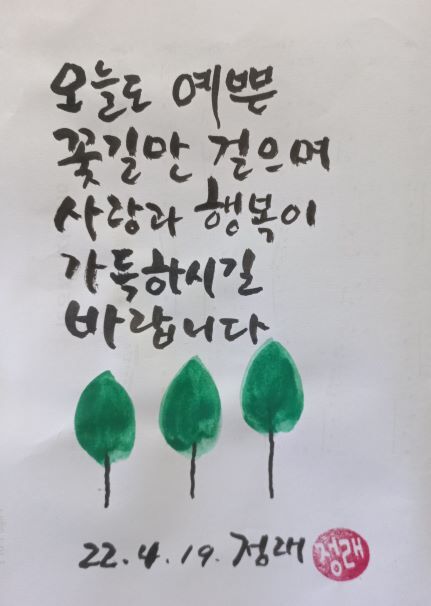 오늘도 예쁜
꽃길만 걸으며
사랑과 행복이
가득하시길
바랍니다
22.4.19. 정래
정래